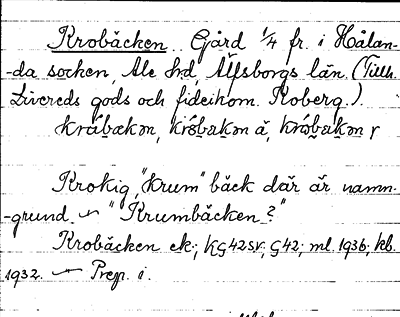 Krobäcken. Gård 1/4 fr. i Hålan-
-da socken, Ale hd, Älfsborgs län. (Tillh.
Livereds gods och fideikom. Koberg.)
Krokig, "krum" bäck där är namn-
-grund. ~ "Krumbäcken?"
Krobäcken ek; KG42SV, G42; ml. 1936; kb.
1932. — Prep. i.